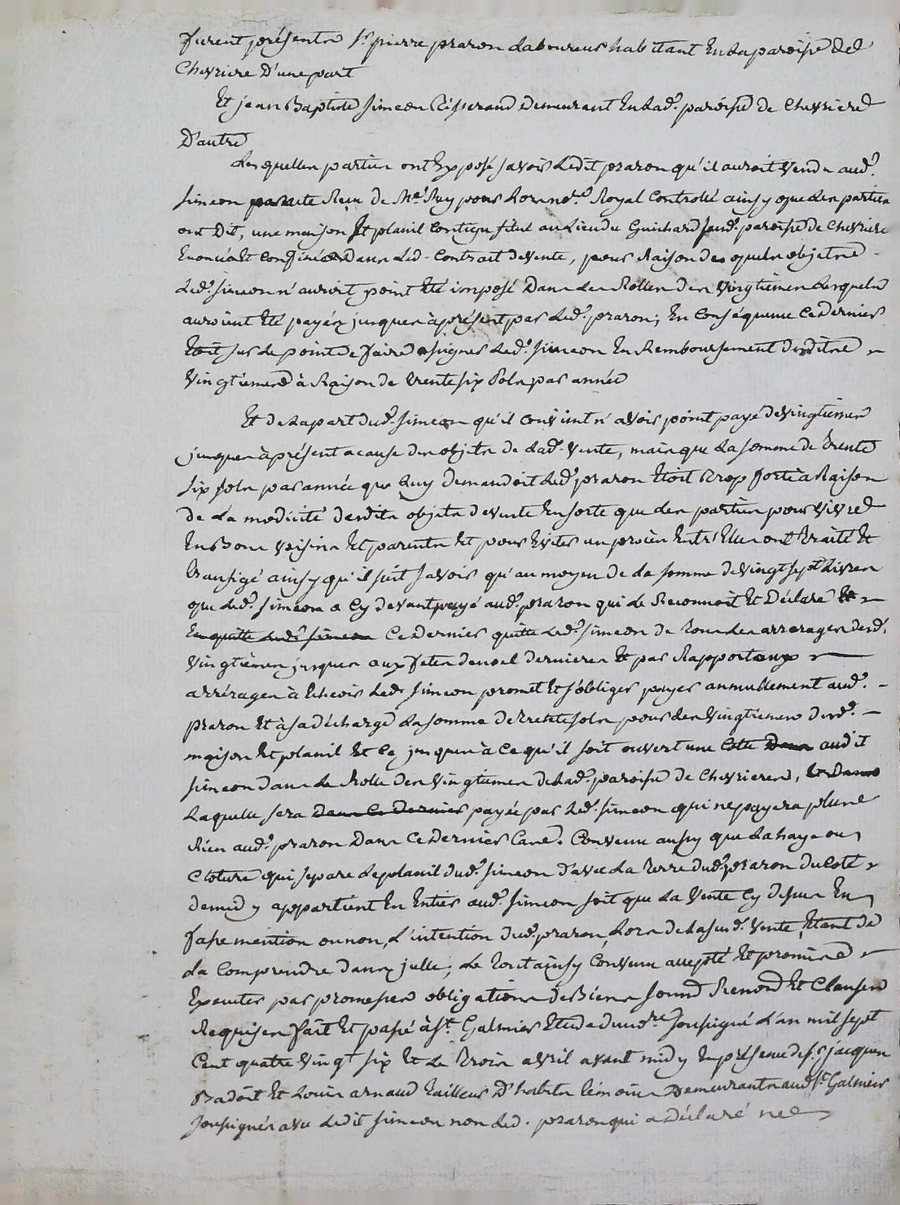 furent présents Sr pierre prazon Laboureur habitant En La paroisse de
Chevriere D'une part
Et jean Baptiste Simeon Tisserand Demeurant En Lad.e paroisse de Chevriere
D'autre
Lesquelles parties ont Exposé savoir Ledit prazon qu'il auroit vendu aud.
Simeon par acte Reçu de Me pour Lors no.re Royal Controllé ainsy que Les parties
ont Dit, une maison Et plasil Contigu situé au Lieu du Guichard susd. paroisse de Chevriere
Enoncés Et Confinés Dans Led. Contrait de Vente, pour Raison desquels objets
Led. Simeon n'auroit point Eté imposé Dans Les Rolles des Vingtiemes Lesquels
auroint Eté payés jusques à présent par Led. prazon; En Conséquence Ce Dernier
Etoit sur Le point de faire assigner Led. Simeon En Remboursement desdits
Vingtiemes à Raison de trente six sols par année
Et de La part dud. Simeon qu'il Convient n'avoir point payé de Vingtiemes
jusques à présent a cause des objets de Lad. Vente, mais que La somme de trente
six sols par année que Luy demandoit Led. prazon Etoit trop forte à Raison
de La modicité desdits objets de Vente En sorte que Les parties pour Vivre
En Bons Voisins Et parents Et pour Eviter un procès Entr'Elles ont traité Et
transigé ainsy qu'il suit savoir qu'au moyen de La somme de Vingt sept Livres
que Led. Simeon a Cy devant payé aud. prazon qui Le Reconnoit Et Déclare Et
En quitte Led. Simeon Ce Dernier quitte Led. Simeon de tous Les arrerages desd.
Vingtiemes jusques aux fetes de noel dernieres Et par Rapport aux
arrérages à Echeoir Led. Simeon promet Et s'obliger payer annuellement aud.
prazon Et à sa décharge La somme de trente sols pour Les Vingtiemes desd.
maison Et plasil Et Ce jusques à Ce qu'il soit ouvert une Cote Dans audit
Simeon dans Le Rolle des Vingtiemes de Lad. paroisse de Chevrieres,
Laquelle sera Dans Ce Dernier payée par Led. Simeon qui ne payera plus
Rien aud. prazon Dans Ce Dernier Cas. Convenu aussy que La haye ou
Cloture qui separe Le plasil dud. Simeon d'avec La terre dud. prazon du Coté
de midy appartient En Entier aud. Simeon soit que La Vente Cy dessus En
fasse mention ou non, L'intention dud. prazon Lors de La susd. Vente Etant de
La Comprendre dans jcelle; Le tout ainsy Convenu accepté Et promis
Executer par promesses obligations de Biens soumd. Renond. Et Clauses
Requises fait Et passé à St. Galmier Etude du no.re soussigné L'an mil sept
Cent quatre Vingt six Et Le trois avril avant midy En présence de Sr. jacques
Badoit Et Louis arnaud tailleur D'habits témoins Demeurants aud. St. Galmier
soussignés avec Ledit Simeon non Led. prazon qui a Déclaré ne